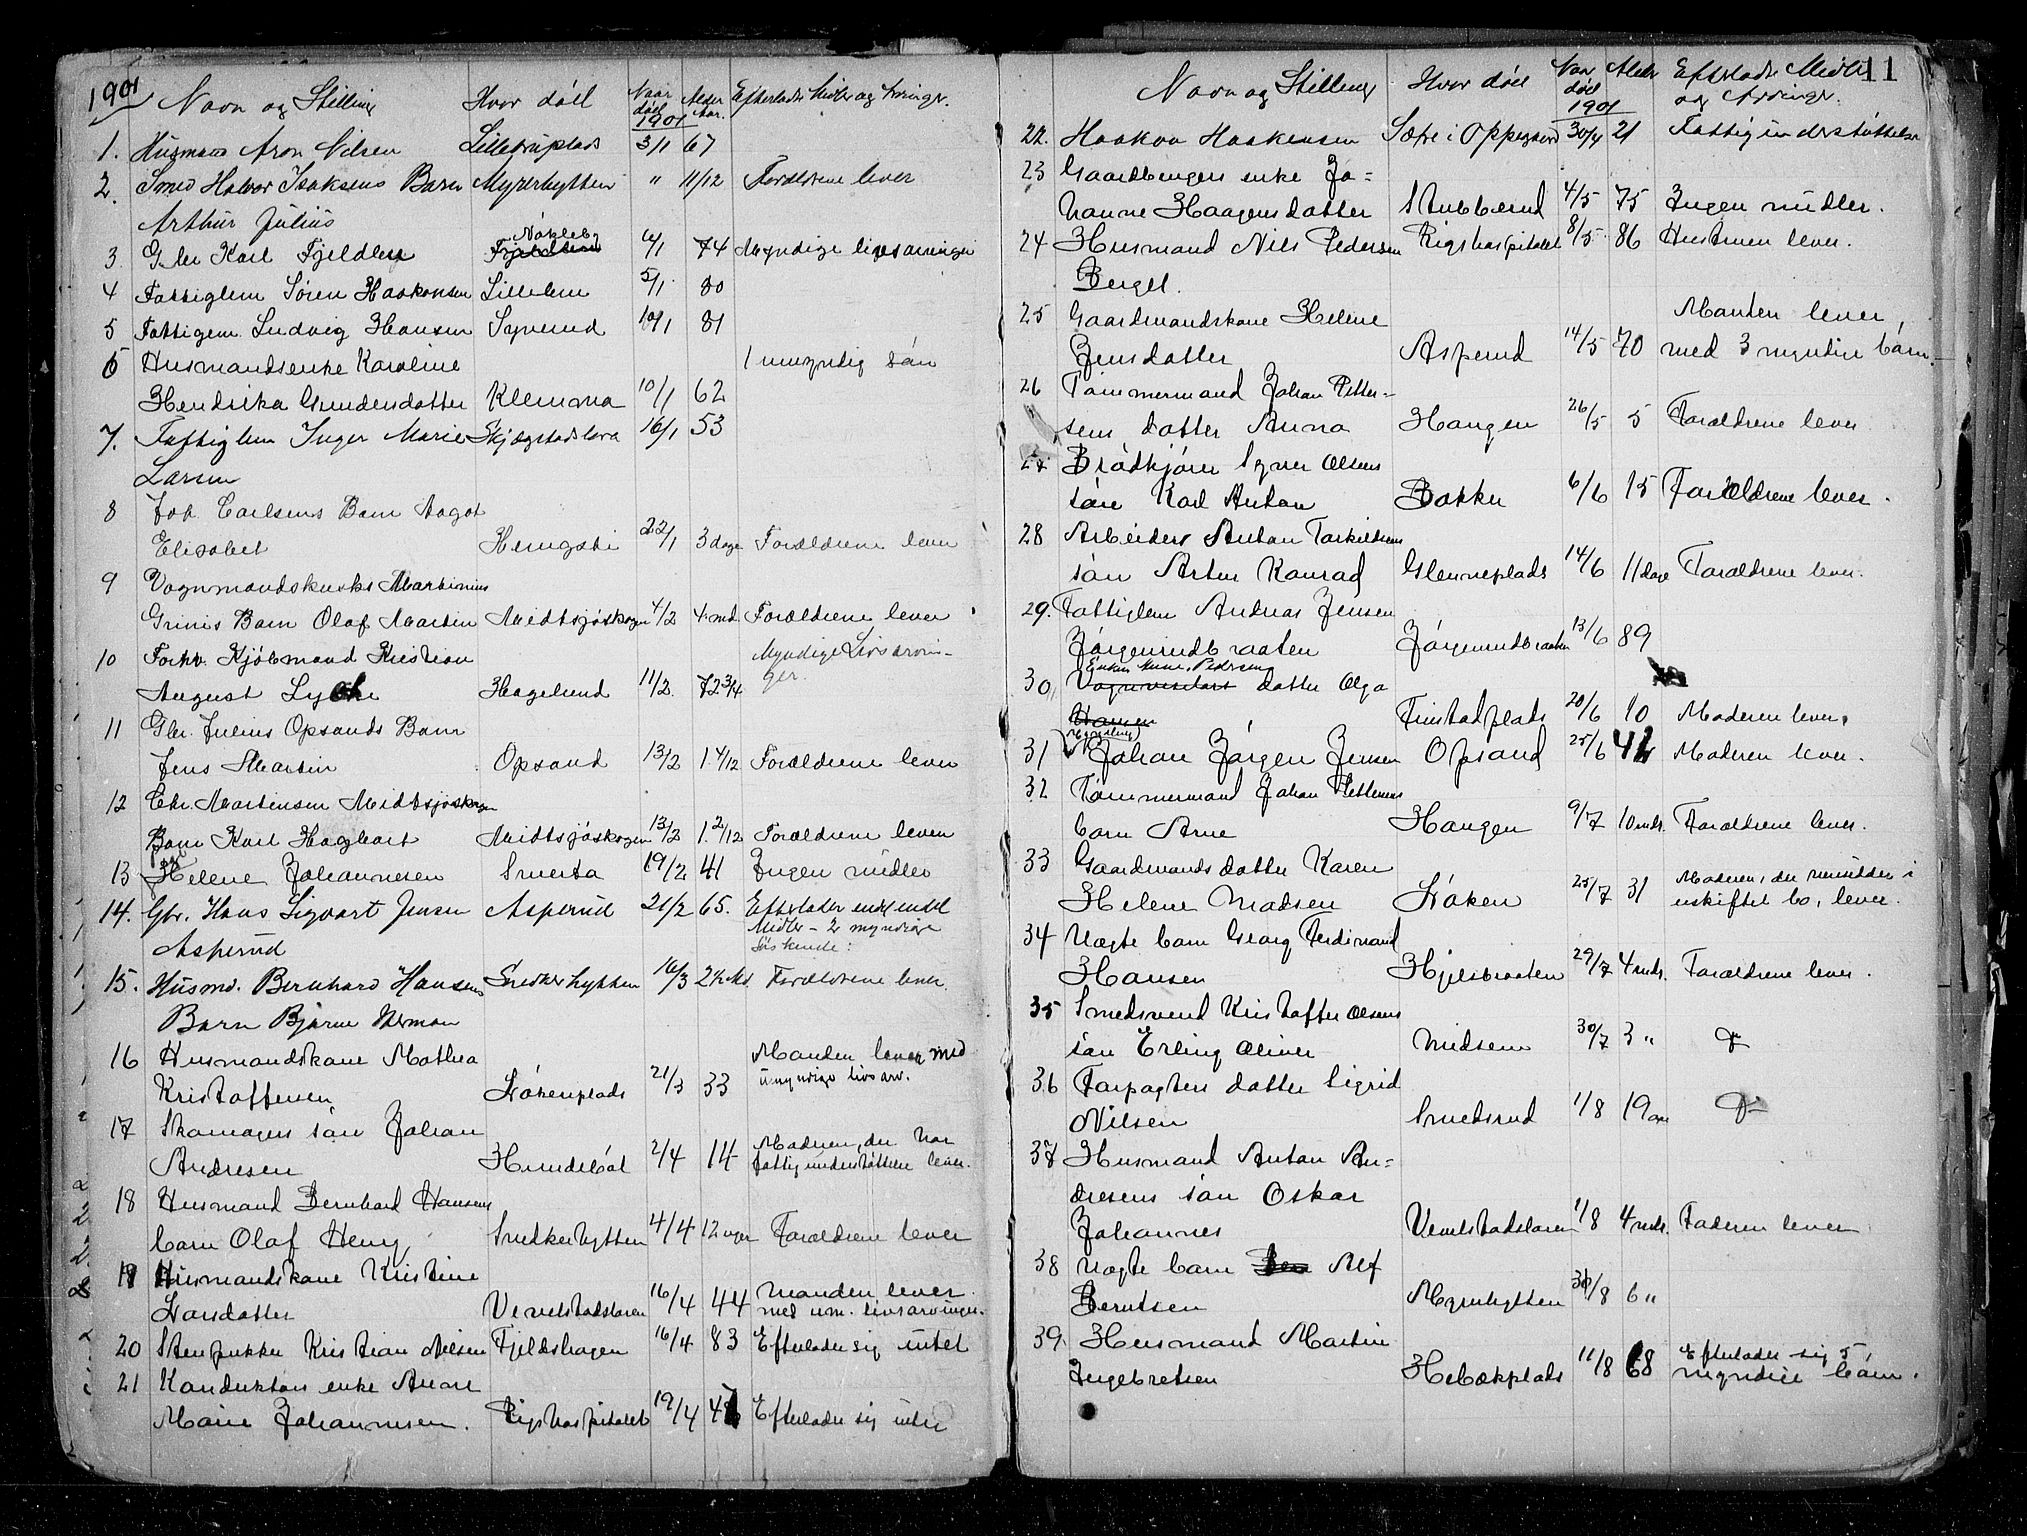 1901
Navn og Stilling Hvor död Naar död 1901 Alder Aar. Efterladte Midler og Arvinger.
1. Husmann Aron Nilsen Lilletrupplads 3/1 67
2. Smed Halvor Isaksens Barn Myrerhytten " 11/12 Forældrene lever
Arthur Julius
3 Gbr Karl Fjeldby Nökleby 6/1 74 Myndige livsarvinger
4 Fattiglem Sören Haakonsen Lillelien 5/1 80
5 Fattiglem Ludvig Hansen Syverud 10/1 81
6 Husmandsenke Karoline 1 umyndig sön
Hendrika Gundersdatter Klemma 10/1 62
7. Fattiglem Inger Marie Skjægstadslora 16/1 53
Larsen
8 Joh. Carlsens Barn Aagot
Elisabet 22/1 3 dage Forældrene lever
9 Vognmandskusks Martinius
Grinis Barn Olaf Martin Midtsjöskogen 4/2 4 md. Forældrene lever
10 Forhv. Kjöbmand Kristian Myndige Livsarvin-
August Lyche Hagelund 11/2. 72 3/4 ger.
11 Gbr. Julius Opsands Barn
Jens Martin Opsand 13/2 1 4/12 Forældrene lever
12 Chr. Martinsen Midtsjöskogen
Barn Karl Hagbart Midtsjöskogen 13/2 1 2/12 Forældrene lever
13 Helene Johannesen Smerta 19/2 41 Ingen midler
14. Gbr. Hans Sigvart Jensen Asperud 21/2 65. Efterlader endel
Asperud Midler - 2 myndige
Söskende.
15. Husmd. Bernhard Hansens Snekkerhytten 16/3 Forældrene lever
Barn Bjarne Herman
16 Husmandskone Mathea Manden lever med
Kristoffersen Stökenplads 21/3 33 umyndige livsarv.
17 Skomagers sön Johan Moderen, der har
Andresen Hundeböl 2/4 14 fattigunderstöttelse lever.
18 Husmand Bernhard Hansens
barn Olaf Henry Snekkerhytten 4/4 12 uger Forældrene lever
19 Husmandskone Kristine Manden lever
Larsdatter Vevelstadslaren 16/4 44 med um. livsarvinger.
20 Stenpukker Kristian Nilsen Fjeldshagen 16/4 83 Efterlader sig intet
21 Konduktörs enke Anne
Marie Johannesen. Rigshospitalet 19/4 Efterlader sig intet
11
Navn og Stilling Hvor död Naar död 1901 Alder Efterladte Midler og Arvinger.
22. Haakon Haakensen Sætre i Oppegaard 30/4 21 Fattigunderstöttelse
23 Gaardbrugers enke Jo=
hanne Haagensdatter Stubberud 4/5 75 Ingen midler.
24 Husmand Nils Pedersen Rigshospitalet 8/5 86 Hustruen lever.
Berget.
25 Gaardmandskone Helene Manden lever,
Jensdatter Asperud 14/5 70 med 3 myndige börn.
26 Tömmermand Johan Petter-
sens datter Anna Haugen 26/5 5 Forældrene lever
27 Brödkjörer Syver Olsens
sön Karl Anton Bakke 6/6 15 Forældrene lever.
28 Arbeiders Anton Torkildsens
sön Artur Konrad Glenneplads 14/6 11 dage Forældrene lever.
29. Fattiglem Andreas Jensen
Jörgenrudbraaten Jörgenrudbraaten 13/6 89
Enken Anne Pedersen
30. Vognvisitörs datter Olga
Hansen Finstadplads 20/6 10 Moderen lever.
31 Johan Jörgen Jensen Opsand 25/6 Moderen lever.
32 Tömmermand Johan Pettersens
barn Arne Haugen 9/7 10 mdr. Forældrene lever.
33 Gaardmands datter Karen Moderen, der hensidder i
Helene Madsen Stöken 25/7 31 uskiftet bo, lever.
34 Uægte barn Georg Ferdinand
Hansen Hjelsbraaten 29/7 4 mdr. Forældrene lever.
35 Smedsvend Kristoffer Olsens
sön Erling Oliver Midsem 30/7 3 "
36 Forpagters datter Sigrid
Nilsen Smedsrud 1/8 19 aar
37 Husmand Anton An=
dresens sön Oskar
Johannes Vevelstadslaren 1/8 4 mdr. Faderen lever
38 Uægte barn Alf
Berntsen Myrerhytten 30/8 6 "
39. Husmand Martin Efterlader sig 5
Ingebretsen Hebækplads 11/8 68 myndige börn.